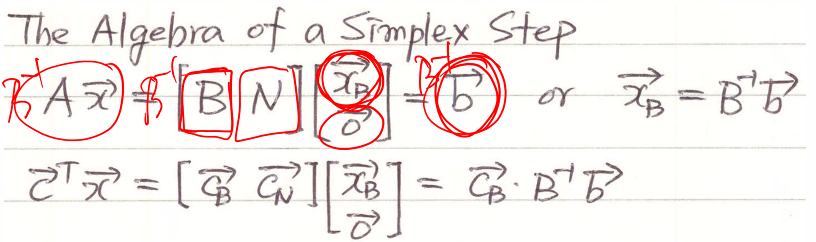 The Algebra of a Simplex Step
B⁻¹ A x⃗ = B⁻¹ [ B N ] [ x⃗_B 0⃗ ] = B⁻¹ b⃗ or x⃗_B = B⁻¹ b⃗
c⃗ᵀ x⃗ = [ c⃗_B c⃗_N ] [ x⃗_B 0⃗ ] = c⃗_B · B⁻¹ b⃗